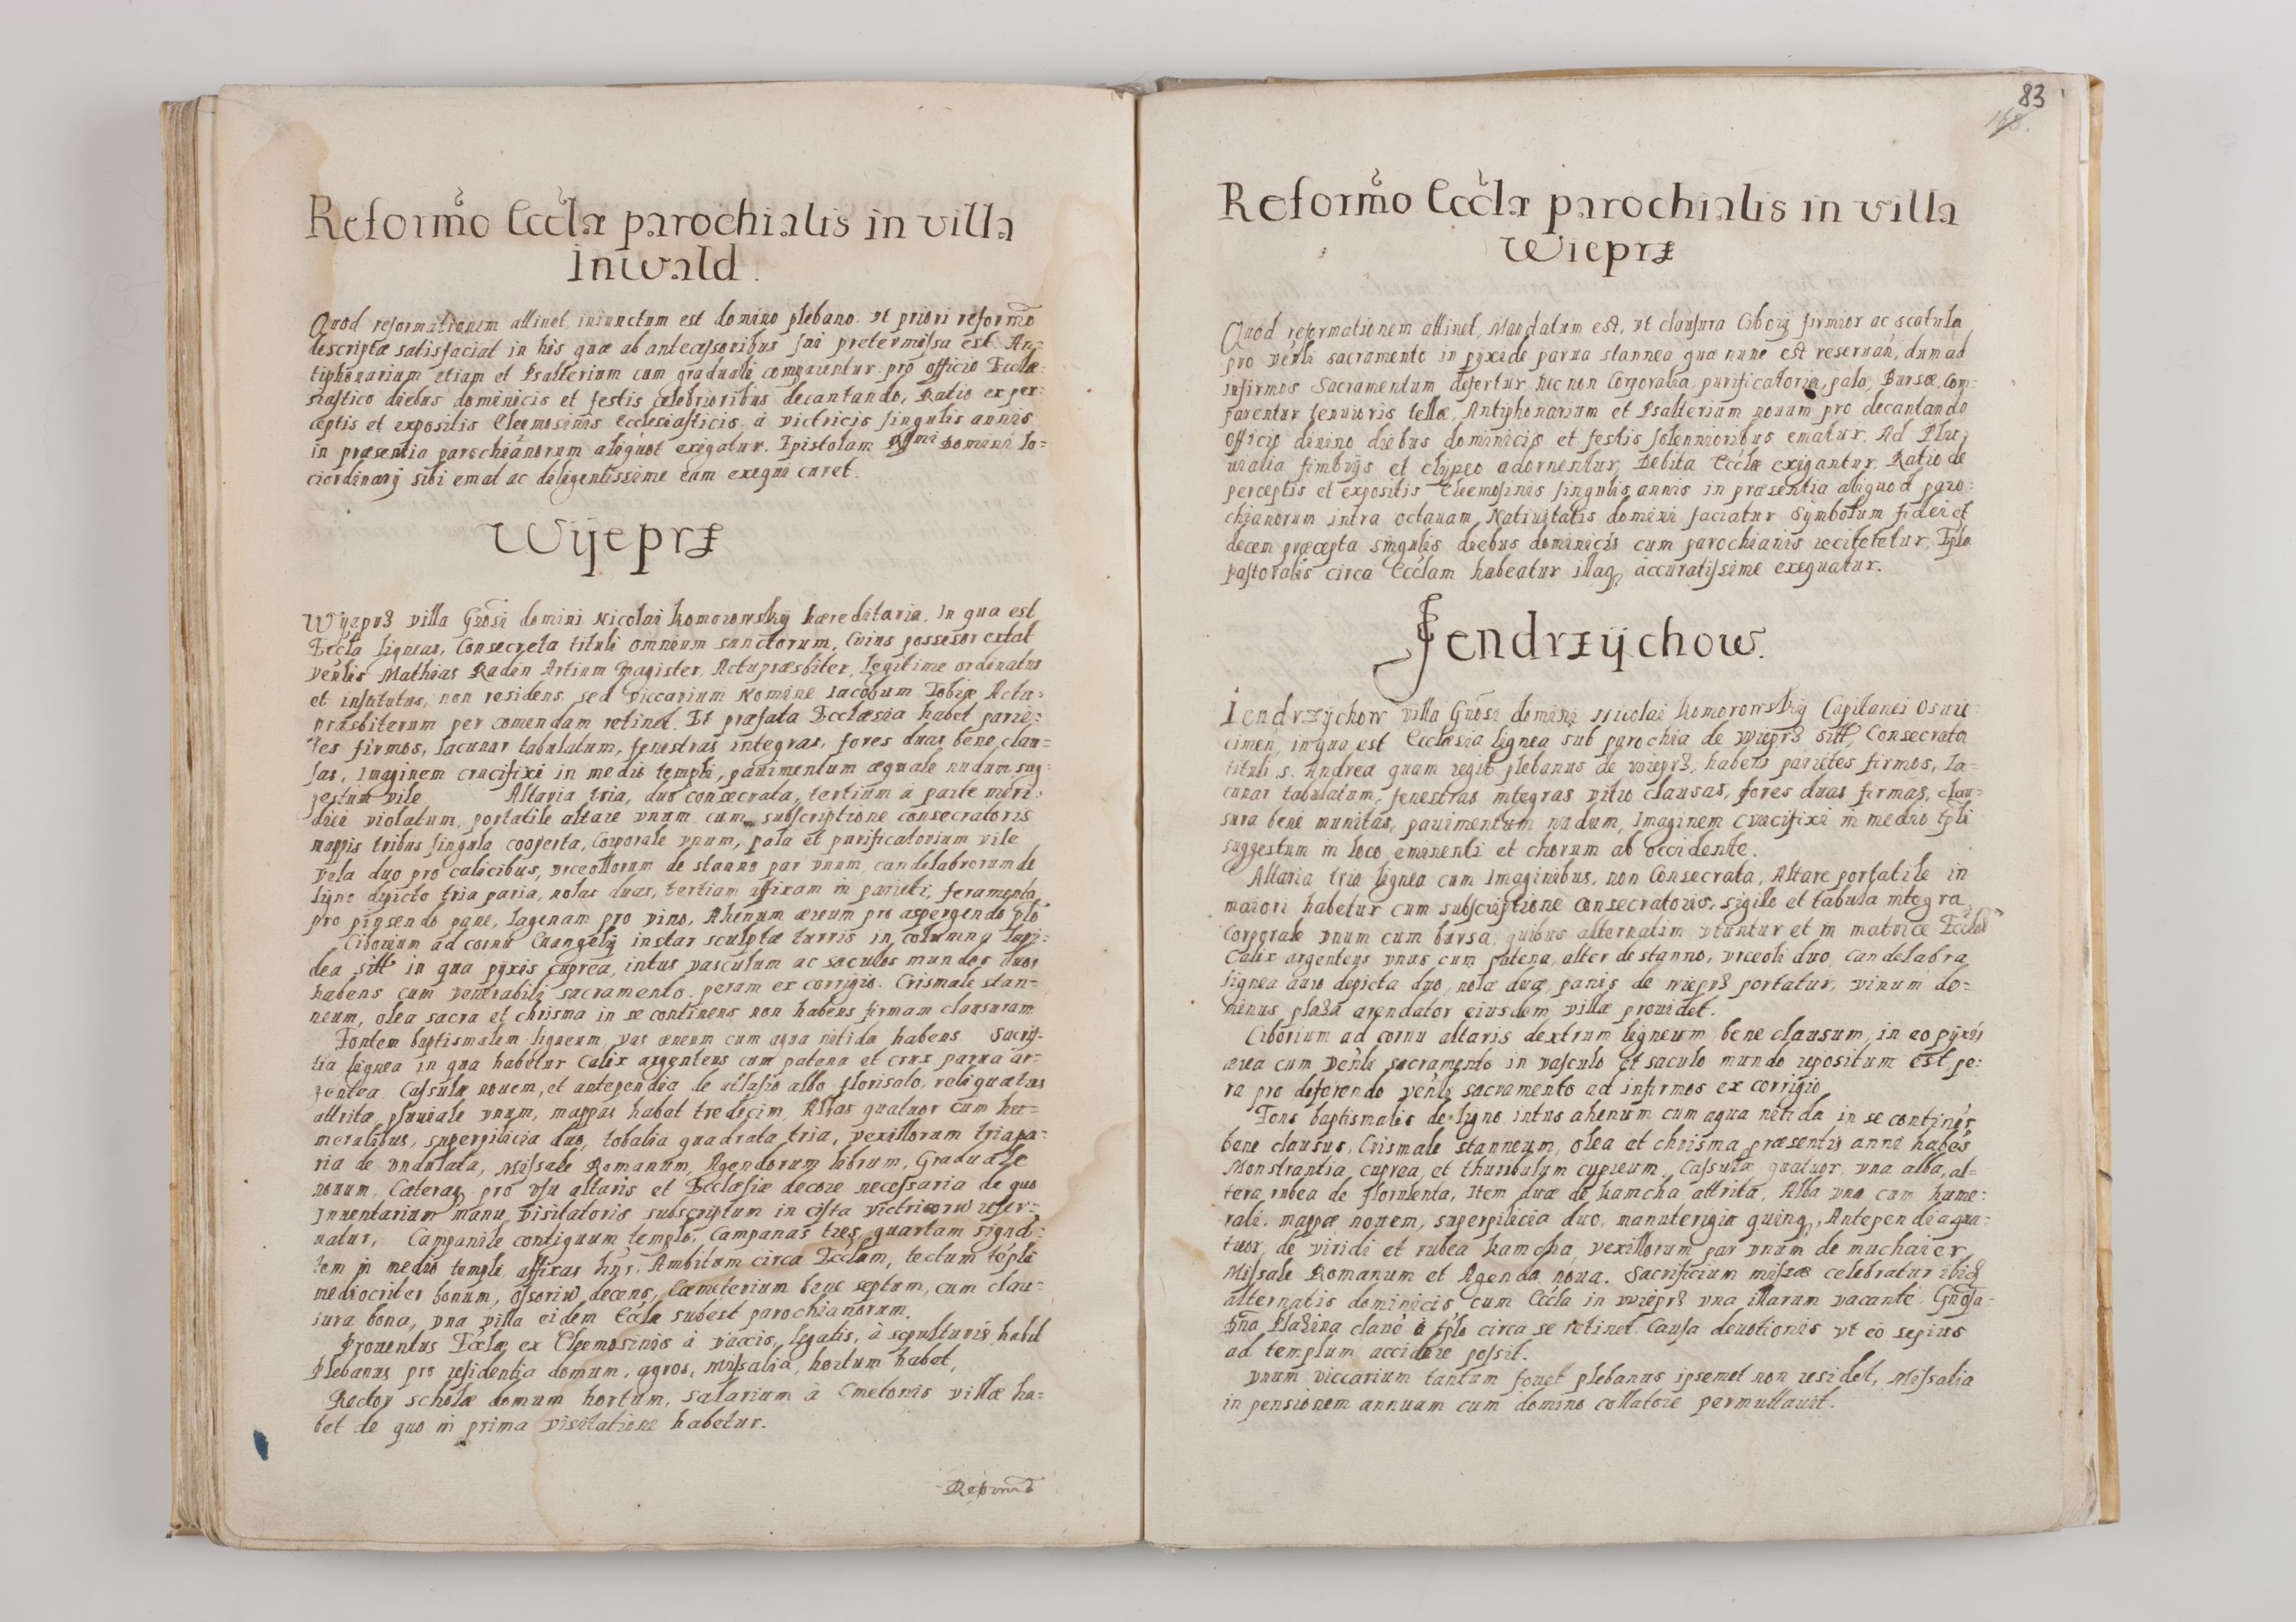 Reformõ Eccłæ parochialis in villa
Inwald.
Quod reformationem attinet, iniunctum est domino plebano. vt priori reformõ
descriptæ satisfaciat in his quæ ab antecessoribus sui pretermissa est. An=
tiphonarium etiam et Psalterium cum graduali comparentur pro officio Eccłæ=
siastico diebus dominicis et festis celebrioribus decantando, Ratio ex per=
ceptis et expositis Eleemosinis Ecclesiasticis à victricis singulis annis
in præsentia parochianorum aliquot exigatur. Epistolam Rmi Domini lo=
ci ordinarij sibi emat ac diligentissime eam exequi curet.
Wÿeprz
Wÿeprz villa Gnosi domini Nicolai Komorowskÿ hæreditaria. In qua est
Eccła lignea, Consecreta tituli omnium sanctorum, Cuius possesor extat
Venlis Mathias Radin Artium Magister, Actu præsbiter, legitime ordinatus
et institutus, non residens, sed viccarium Nomine Iacobum Tobiæ Actu=
præsbiterum per comendam retinet. Et præfata Ecclæsia habet parie=
tes firmos, lacunar tabulatum, fenestras integras, fores duas bene clau=
sas, Imaginem crucifixi in medio templi, pauimentum æquale nudum, sug=
gestum vile Altaria tria, duo consecrata, tertium à parte meri=
diei violatum, portatile altare vnum cum subscriptione consecratoris
mappis tribus singula cooperta, Corporale vnum, pala et purificatorium vile
Vela duo pro calicibus, vrceollorum de stanno par vnum, candelabrorum de
ligno depicto tria paria, nolas duas, tertiam affixam in parieti, feramenta
pro pinsendo pane, lagenam pro vino, Ahenum æreum pro aspergendo plo
Ciborium ad cornu Euangelij instar sculptæ turris in columna lapi=
dea sitt in qua pyxis cuprea, intus vasculum ac saculos mundos duos
habens cum venerabili sacramento. peram ex corrigio. Crismale stan=
neum, olea sacra et chrisma in se continens non habens firmam clausuram
Fontem baptismalem ligneum, vas æneum cum aqua nitida habens Sacris=
tia lignea in qua habetur Calix argenteus cum patena et crux parua ar=
gentea Casulæ nouem, et antependia de atlasio albo florisato, reliquæ tas
attritæ, pluuiale vnum, mappas habet tredecim, Albas quatuor cum hu=
meralibus, superpilicia duo, tobalia quadrata tria, vexillorum tria pa=
ria de vndulata, Missale Romanum, Agendorum librum, Graduale
nouum, Cæteraq pro vsu altaris et Ecclæsiæ decore necessaria de quo
Inuentarium manu Visitatoris subscriptum in cista victricorum reser=
uatur, Campanile contiguum templo, Campanas tres, quartam signo
lem in medio templi affixas hns. Ambitum circa Eccłam, tectum tépli
mediocriter bonum, Ossoriũ decens, Cæmeterium bene septum, cum clau=
sura bona, vna villa eidem Eccłæ subest parochianorum.
Prouentus Eccłæ ex Eleemosinis à vaccis, legatis, à sepulturis habet
Plebanus pro residentia domum, agros, missalia, hortum habet,
Rector scholæ domum hortum, salarium à Cmetonis villæ ha=
bet de quo in prima visitatione habetur.
Reformõ
83
168.
Reformõ Eccłæ parochialis in villa
Wieprz
Quod reformationem attinet, Mandatum est, vt clausura Ciborij firmior ac scatula
pro Venli sacramento in pyxide parua stannea, quæ nunc est reseruań, dum ad
infirmos Sacramentum defertur, Nec non Corporalia, purificatoria, palæ, Bursæ, Com=
parentur tenuioris tellæ, Antiphonarium et Psalterium nouum pro decantando
Officio diuino diebus dominicis et festis solennioribus ematur. Ad Plu=
uialia fimbrijs et clypeo adornentur, Debita Eccłæ exigantur, Ratio de
perceptis et expositis Eleemosinis singulis annis in præsentia aliquod paro=
chianorum intra octauam Natiuitatis domini faciatur Symbolum fidei et
decem præcepta singulis diebus dominicis cum parochianis recitetetur, Epla
pastoralis circa Eccłam habeatur illaq accuratissime exequatur.
Jendrzÿchow.
Iendrzÿchow villa Gnosi domini Nicolai Komorowskÿ Capitanei Oswie=
cimeń, in qua est Ecclæsia lignea sub parochia de Wieprz sitt, Consecrata
tituli s. Andreæ quam regit plebanus de Wieprz, habens parietes firmos, la=
cunar tabulatum, fenestras integras vitro clausas, fores duas firmas, clau=
sura bene munitas, pauimentum nudum, Imaginem Crucifixi in medio tpli
suggestum in loco eminenti et chorum ab occidente.
Altaria tria lignea cum Imaginibus, non Consecrata, Altare portatile in
maiori habetur cum subscriptione Consecratoris, sigillo et tabula integra
Corporale vnum cum bursa, quibus alternatim vtuntur et in matrice Eccła
Calix argenteus vnus cum patena, alter de stanno, vrceoli duo, Candelabra
lignea auro depicta duo, nolæ duæ, panis de wieprz portatur, vinum do=
minus plaza arendator eiusdem villæ prouidet.
Ciborium ad cornu altaris dextrum ligneum bene clausum, in eo pyxis
ærea cum Venli sacramento in vasculo et saculo mundo repositum est, pe=
ra pro deferendo venli sacramento ad infirmos ex corrigio
Fons baptismalis de ligno intus ahenum cum aqua nitida in se continés
bene clausus, Crismale stanneum, olea et chrisma præsentis anni habés
Monstrantia cuprea, et thuribulum cupreum, Cassulæ quatuor, vna alba, al=
tera rubea de florulenta, Item duæ de kamcha attrita, Alba vna cum hume=
rali, mappæ nouem, superpilicia duo, manuterigia quinq, Antependia qua=
tuor, de viridi et rubea kamcha, vexillorum par vnum de muchaier,
Missale Romanum et Agenda noua. Sacrificium missæ celebratur ibid
alternatis dominicis cum Eccła in wieprz vna illarum vacante. Gnosa=
Dna Plazina clane à tplo circa se retinet Causa deuotionis vt eo sepius
ad templum accidere possit.
Vnum viccarium tantum fouet plebanus ipsemet non residet, Missalia
in pensionem annuam cum domino collatore permuttauit.